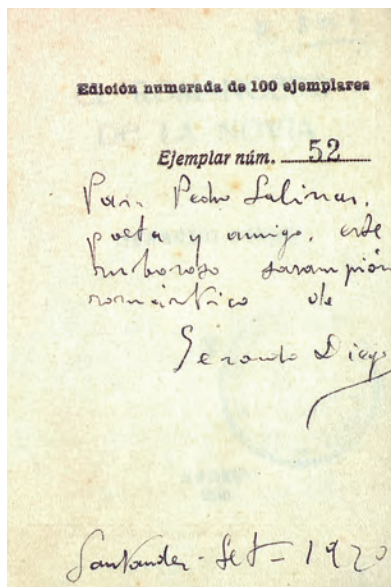 Edición numerada de 100 ejemplares
Ejemplar núm. 52
Para Pedro Salinas,
poeta y amigo, este
ruboroso sarampión
romántico de
Gerardo Diego
Santander - Set - 1920